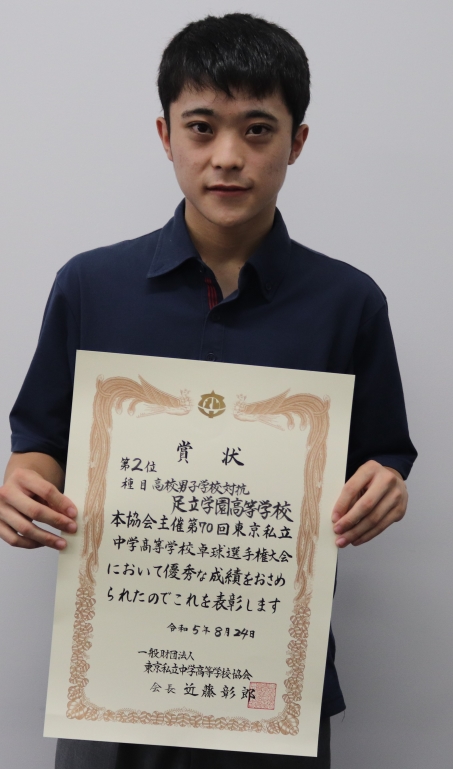 賞状
第2位
種目 高校男子学校対抗
足立学園高等学校
本協会主催第70回東京私立
中学高等学校卓球選手権大会
において優秀な成績をおさめ
られたのでこれを表彰します
令和5年8月24日
一般財団法人
東京私立中学高等学校協会
会長 近藤彰郎